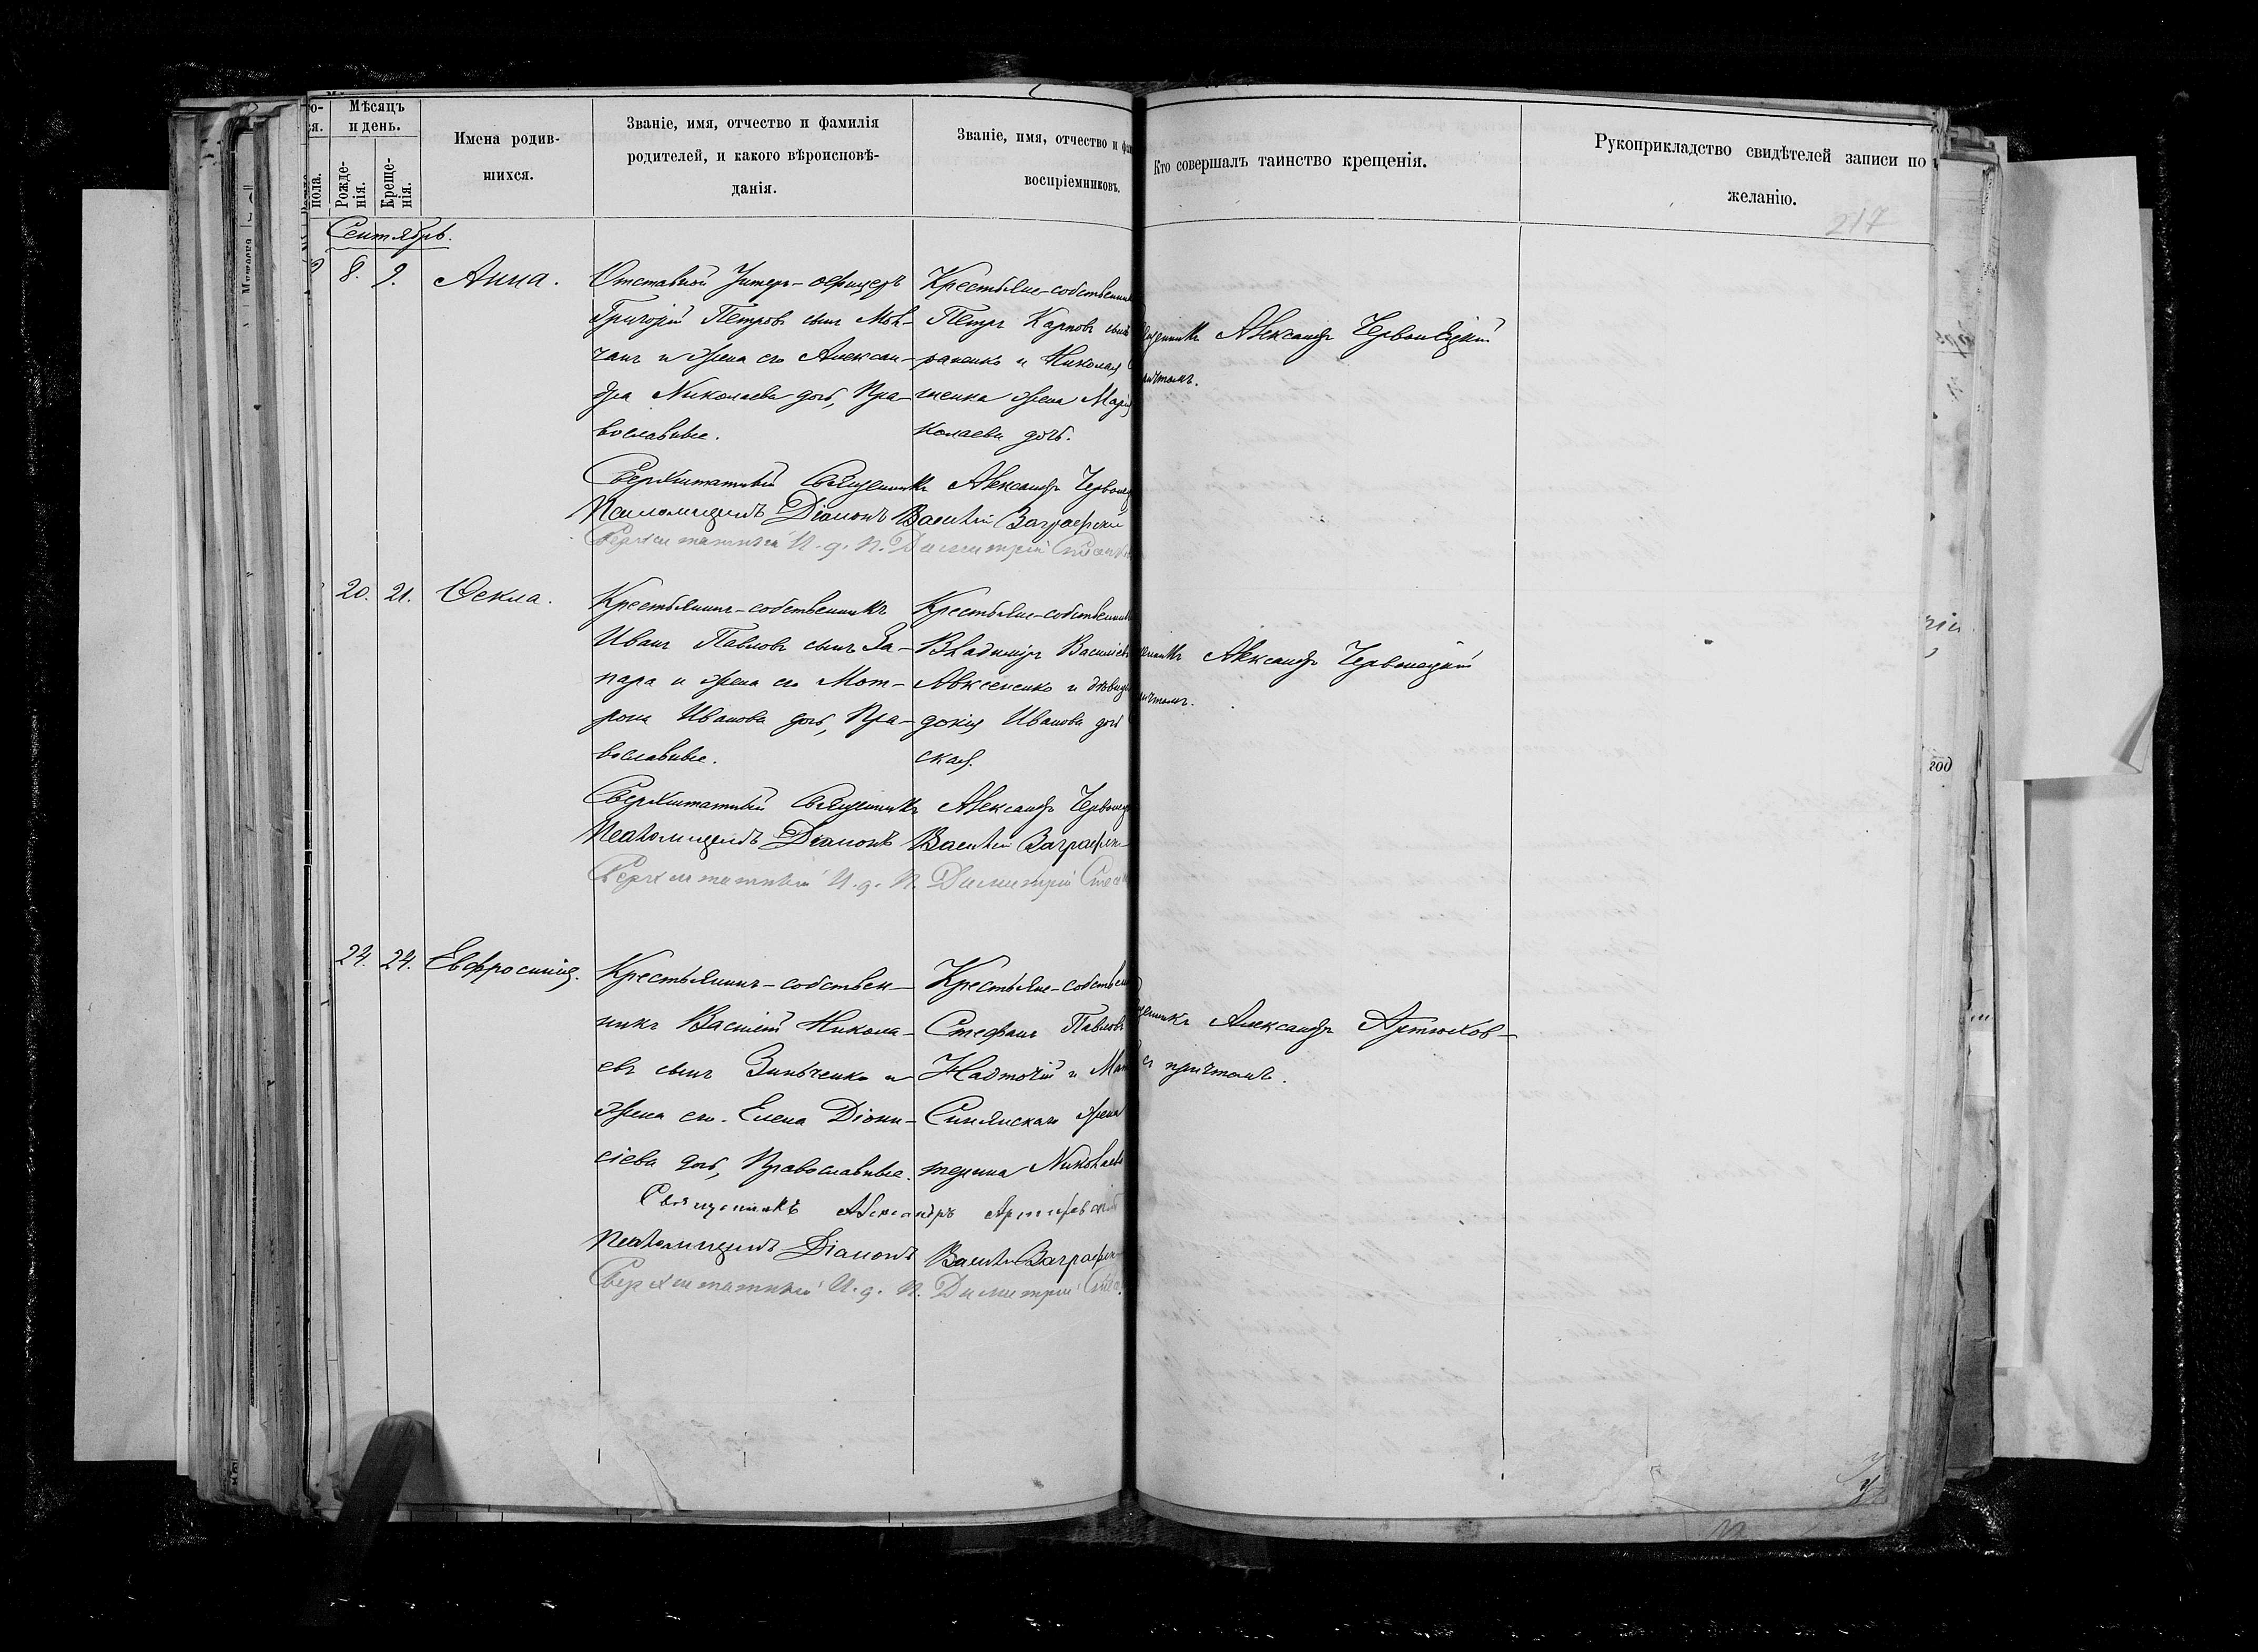 Мѣсяцъ
и день.
Рожде-
нія.
Креще-
нія.
пола.
Имена родив-
шихся.
Званіе, имя, отчество и фамилія
родителей, и какого вѣроисповѣ-
данія.
Званіе, имя, отчество и
воспріемниковъ.
Кто совершалъ таинство крещенія.
Рукоприкладство свидѣтелей записи по
желанію.
217
Сентябрь.
8. 9. Анна.
Отставной Унтеръ-офицеръ
Григорій Петровъ сынъ Мов-
чанъ и жена его Алексан-
дра Николаева дочь, Пра-
вославные.
Крестьяне-собственни
Петръ Карповъ сынъ
раненко и Николая
ненка жена Марія
колаева дочь.
Александръ Червонецкій
причтомъ.
Сверхштатный Священникъ Александръ Червонец
Псаломщикъ Діаконъ Василій Заграфскій
Сверхштатный И. д. П. Димитрій
20. 21. Ѳекла.
Крестьянинъ-собственникъ
Иванъ Павловъ сынъ За-
пара и жена его Мот-
рона Иванова дочь, Пра-
вославные.
Крестьяне-собственни
Владиміръ Василіевъ
Авксененко и дѣвица
докія Иванова дочь
ская.
Александръ Червонецкій
причтомъ.
Сверхштатный Священникъ Александръ Червонец
Псаломщикъ Діаконъ Василій Заграфск
Сверхштатный И. д. П. Димитрій
24. 24. Евфросинія.
Крестьянинъ-собствен-
никъ Василій Никола-
евъ сынъ Зинченко и
жена его Елена Діони-
сіева дочь, Православные.
Крестьяне-собствен
Стефанъ Павловъ
Надточій и
Синянскаго жена
терина Николаев
Александръ Артюхов-
съ причтомъ.
Священникъ Александръ Артюховскій
Псаломщикъ Діаконъ Василій Заграфск
Сверхштатный И. д. П. Димитрій
год